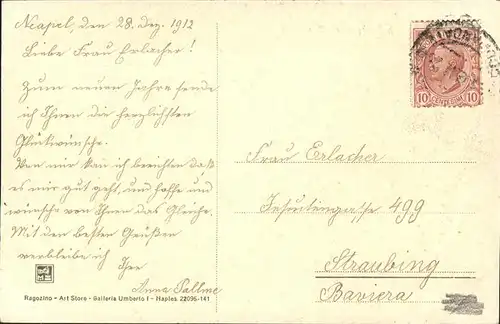 Neapel, den 28. Dez. 1912
Liebe Frau Erlacher!
Zum neuen Jahre sende
ich Ihnen die herzlichsten
Glückwünsche.
Von mir kan ich berichten daß
es mir gut geht, und hoffe und
wünsche von Ihnen das Gleiche.
Mit den besten Grüßen
verbleibe ich
Ihre
Anna
Ragozino - Art Store - Galleria Umberto I - Naples 22096-141
10 CENTESIMI 10
Frau Erlacher
Jesuitengasse 499
Straubing
Baviera